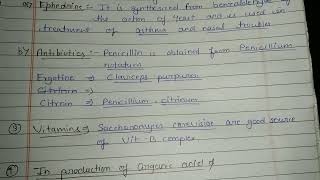 a) Ephedrine :- It is synthesized from benzaldehyde by
the action of Yeast and is used in
treatment of asthma and nasal troubles
b) Antibiotics :- Penicillin is obtained from Penicillium
notatum
Ergotine → Claviceps purpurea
Citrinin
Citrinin → Penicillium citrinum
③ Vitamins → Saccharomyces cerevisiae are good source
of Vit-B complex
④ In production of Organic acid